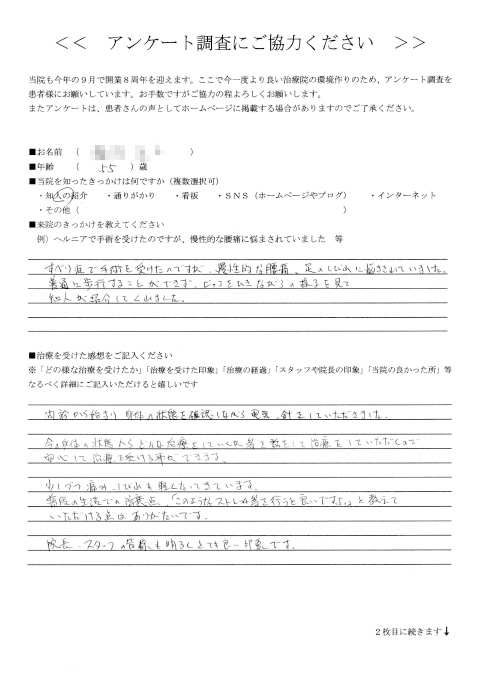 << アンケート調査にご協力ください >>
当院も今年の9月で開業8周年を迎えます。ここで今一度より良い治療院の環境作りのため、アンケート調査を
患者様にお願いしています。お手数ですがご協力の程よろしくお願いします。
またアンケートは、患者さんの声としてホームページに掲載する場合がありますのでご了承ください。
■お名前 ( )
■年齢 ( 55 )歳
■当院を知ったきっかけは何ですか(複数選択可)
・知人の紹介 ・通りがかり ・看板 ・SNS(ホームページやブログ) ・インターネット
・その他( )
■来院のきっかけを教えてください
例)ヘルニアで手術を受けたのですが、慢性的な腰痛に悩まされていました 等
すべり症で手術を受けたのですが、慢性的な腰痛、足のしびれに悩まされていました。
普通に歩行することができず、ビッコをひきながらの様子を見て
知人が紹介してくれました。
■治療を受けた感想をご記入ください
※「どの様な治療を受けたか」「治療を受けた印象」「治療の経過」「スタッフや院長の印象」「当院の良かった所」等
なるべく詳細にご記入いただけると嬉しいです
身体の状態を確認しながら電気、針をしていただきました。
今の身体の状態からどんな治療をしていくか等を話をして治療をしていただくので
安心して治療を受ける事ができます。
少しづつ痛み、しびれも軽くなってきています。
普段の生活での注意点、「このようなストレッチ等を行うと良いですよ。」と教えて
いただける点はありがたいです。
院長、スタッフの皆様も明るくとても良い印象です。
2枚目に続きます↓